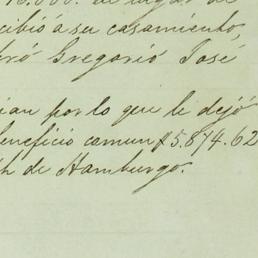 13.000. de lugar de
cibió a su casamiento,
ró Gregorio José
ian por lo que le dejó
beneficio comun $5.874.62
th de Hamburgo.